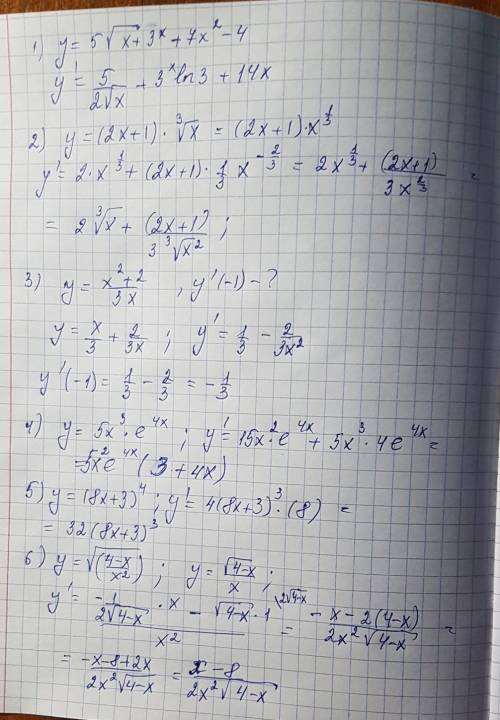 1) y = 5√x + 3ˣ + 7x² − 4
y' = 5/(2√x) + 3ˣ ln 3 + 14x
2) y = (2x+1) · ∛x = (2x+1) · x^(1/3)
y' = 2 · x^(1/3) + (2x+1) · 1/3 x^(−2/3) = 2x^(1/3) + (2x+1)/(3x^(2/3)) =
= 2∛x + (2x+1)/(3∛x²) ;
3) y = (x²+2)/(3x) , y'(−1) − ?
y = x/3 + 2/(3x) ; y' = 1/3 − 2/(3x²)
y'(−1) = 1/3 − 2/3 = −1/3
4) y = 5x³ · e^(4x) ; y' = 15x² · e^(4x) + 5x³ · 4e^(4x) =
= 5x² e^(4x) (3 + 4x)
5) y = (8x+3)⁴ ; y' = 4(8x+3)³ · (8) =
= 32(8x+3)³
6) y = √((4−x)/x²) ; y = √(4−x)/x ;
y' = (−1/(2√(4−x)) · x − √(4−x) · 1)/x² ^(2√(4−x)) = (−x − 2(4−x))/(2x²√(4−x)) =
= (−x−8+2x)/(2x²√(4−x)) = (x−8)/(2x²√(4−x))